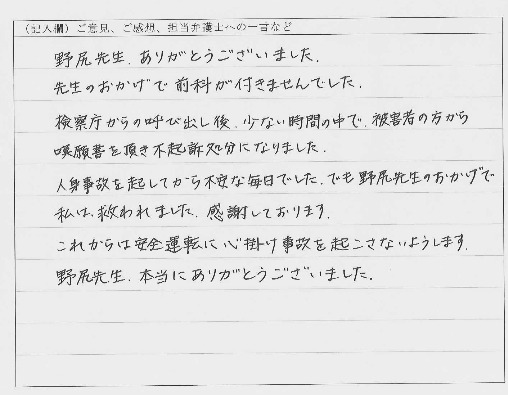 (記入欄)ご意見、ご感想、担当弁護士への一言など
野尻先生、ありがとうございました。
先生のおかげで前科が付きませんでした。
検察庁からの呼び出し後、少ない時間の中で、被害者の方から
嘆願書を頂き不起訴処分になりました。
人身事故を起してから不安な毎日でした。でも野尻先生のおかげで
私は、救われました。感謝しております。
これからは安全運転に心掛け事故を起こさないようします。
野尻先生、本当にありがとうございました。